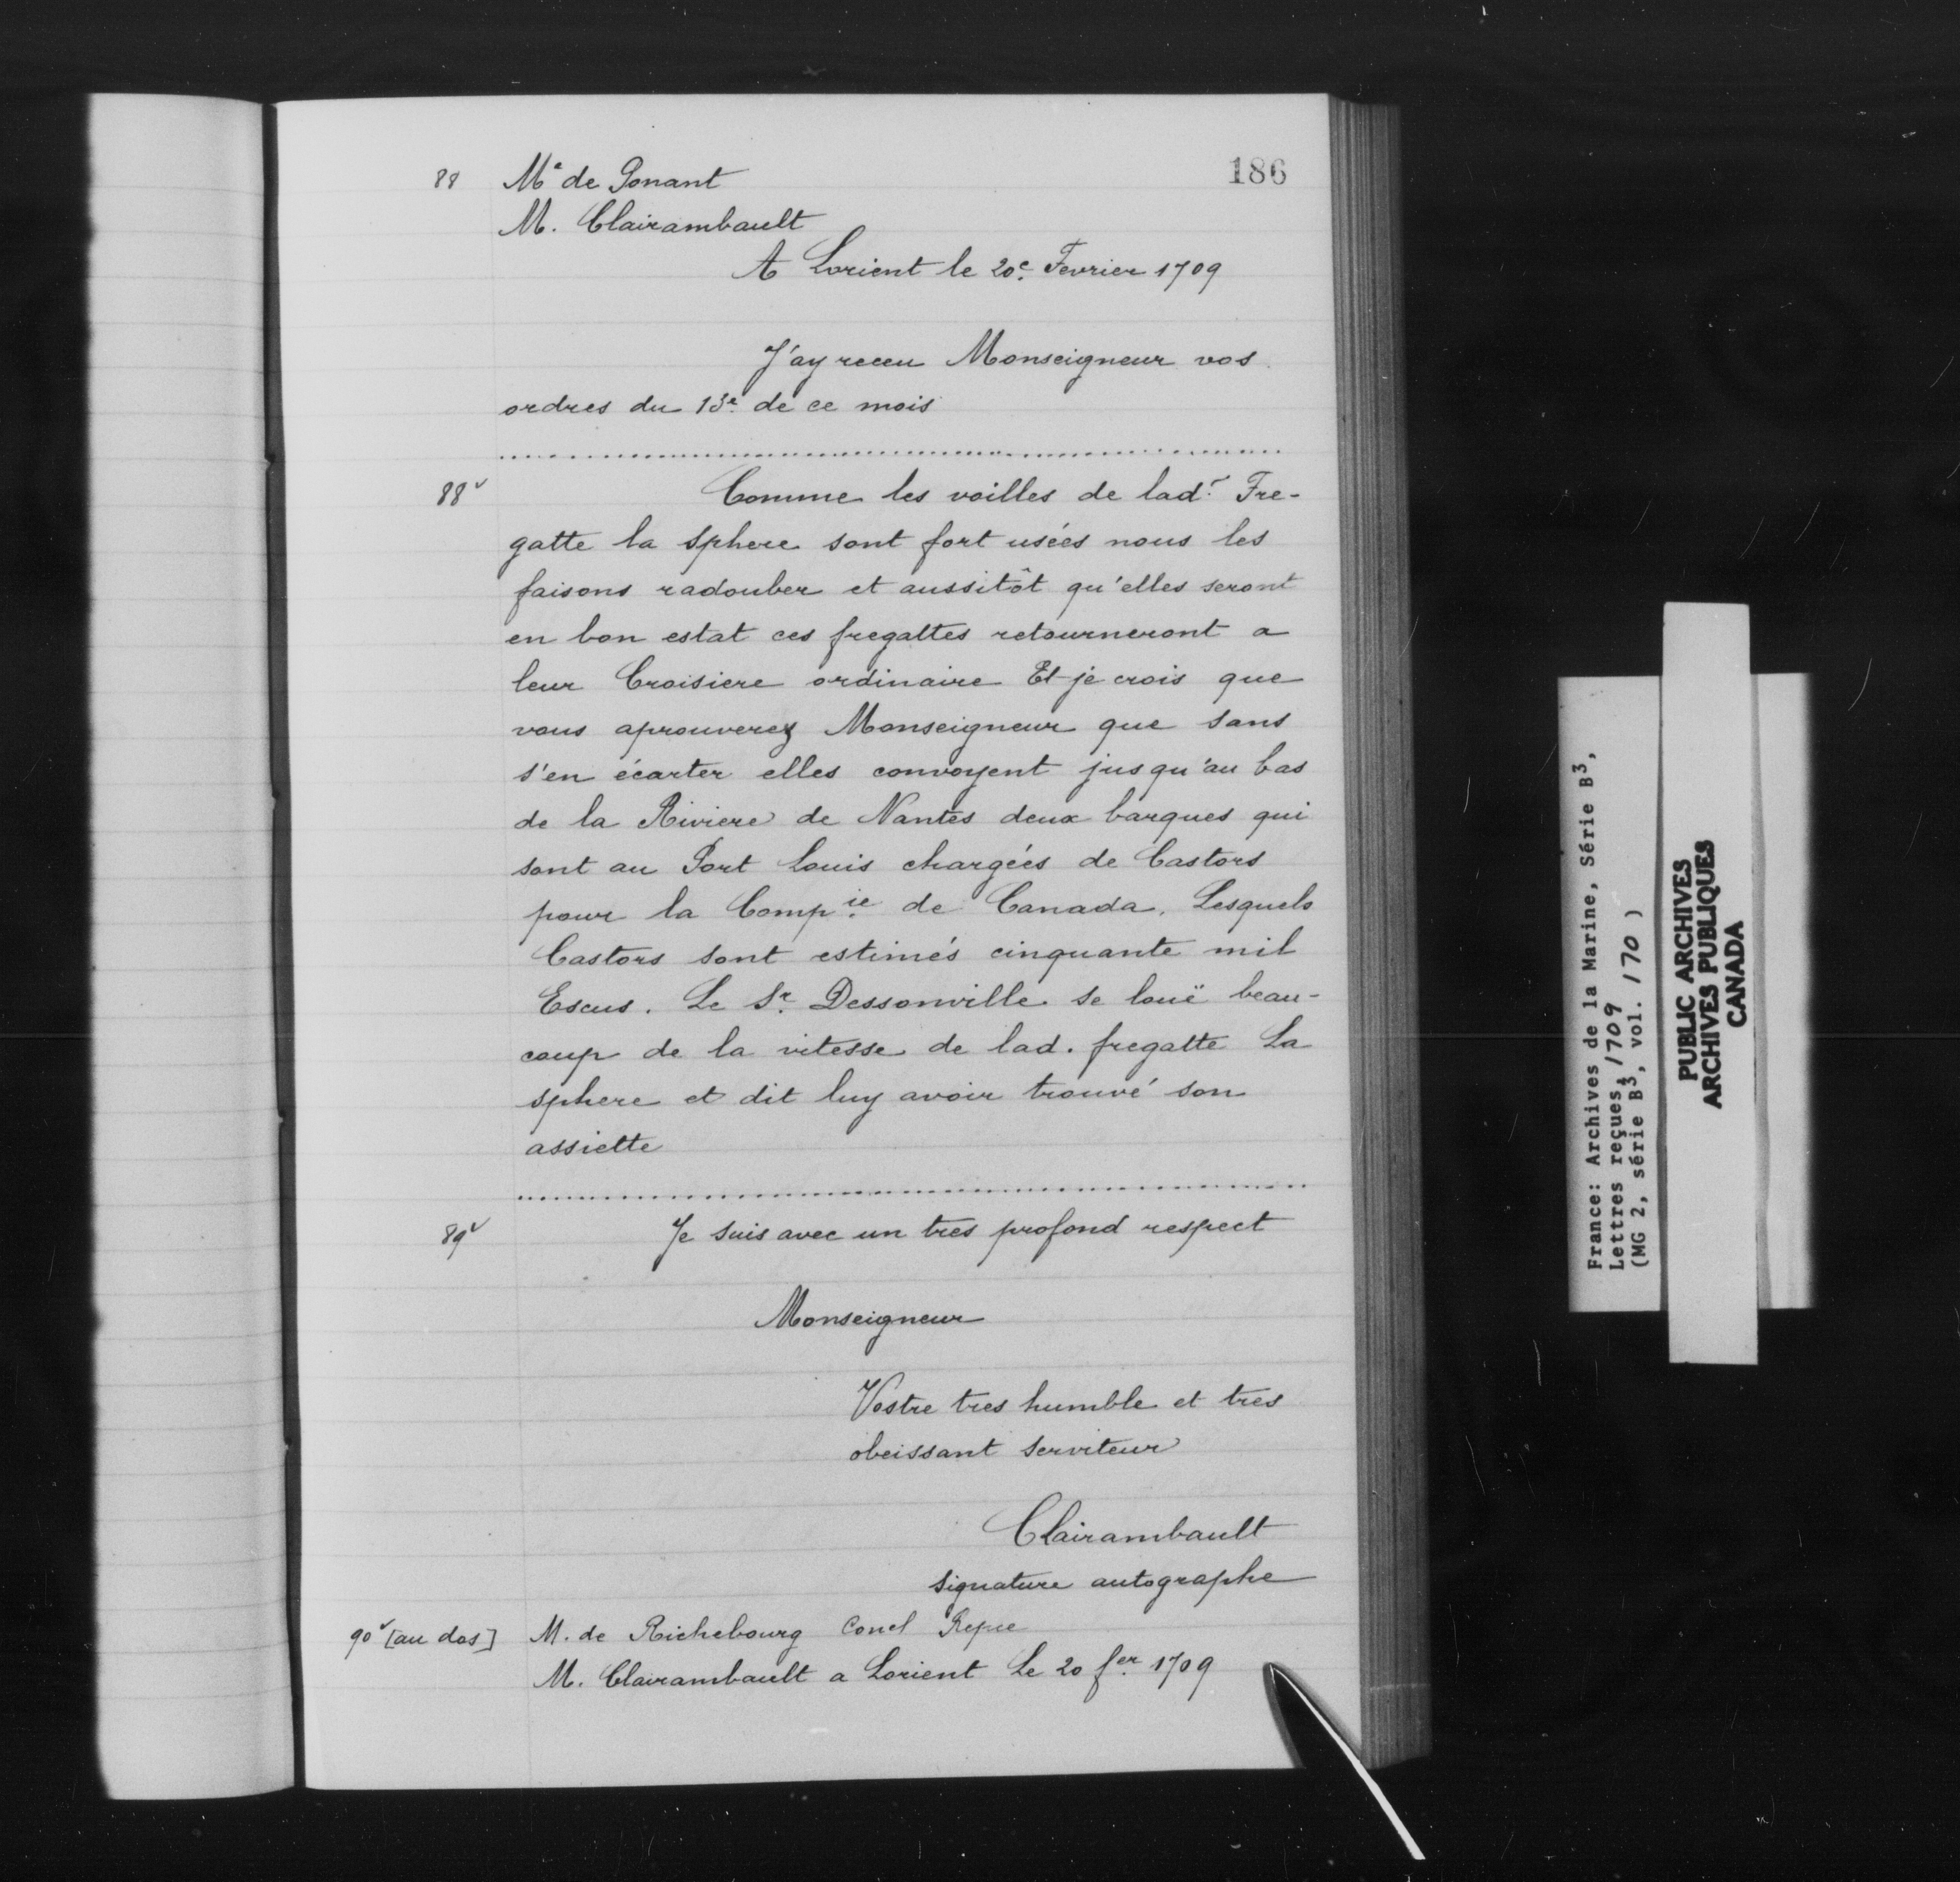 186
88 Mᵉ de Ponant
M. Clairambault
A Lorient le 20e. Fevrier 1709
J'ay receu Monseigneur vos
ordres du 13e. de ce mois
88v Comme les voilles de lad. Fre-
gatte la Sphere sont fort usées nous les
faisons radouber et aussitôt qu'elles seront
en bon estat ces fregattes retourneront a
leur Croisiere ordinaire Et je crois que
vous aprouverez Monseigneur que sans
s'en écarter elles convoyent jusqu'au bas
de la Riviere de Nantes deux barques qui
sont au Port Louis chargées de Castors
pour la Compie. de Canada. Lesquels
Castors sont estimés cinquante mil
Escus. Le Sr. Dessonville se louë beau-
coup de la vitesse de lad. fregatte La
sphere et dit luy avoir trouvé son
assiette
89v Je suis avec un tres profond respect
Monseigneur
Vostre tres humble et tres
obeissant serviteur
Clairambault
signature autographe
90v [au dos] M. de Richebourg Concl Repce
M. Clairambault a Lorient Le 20 fer. 1709
France: Archives de la Marine, Série B3,
Lettres reçues, 1709
(MG 2, série B3, vol. 170 )
PUBLIC ARCHIVES
ARCHIVES PUBLIQUES
CANADA